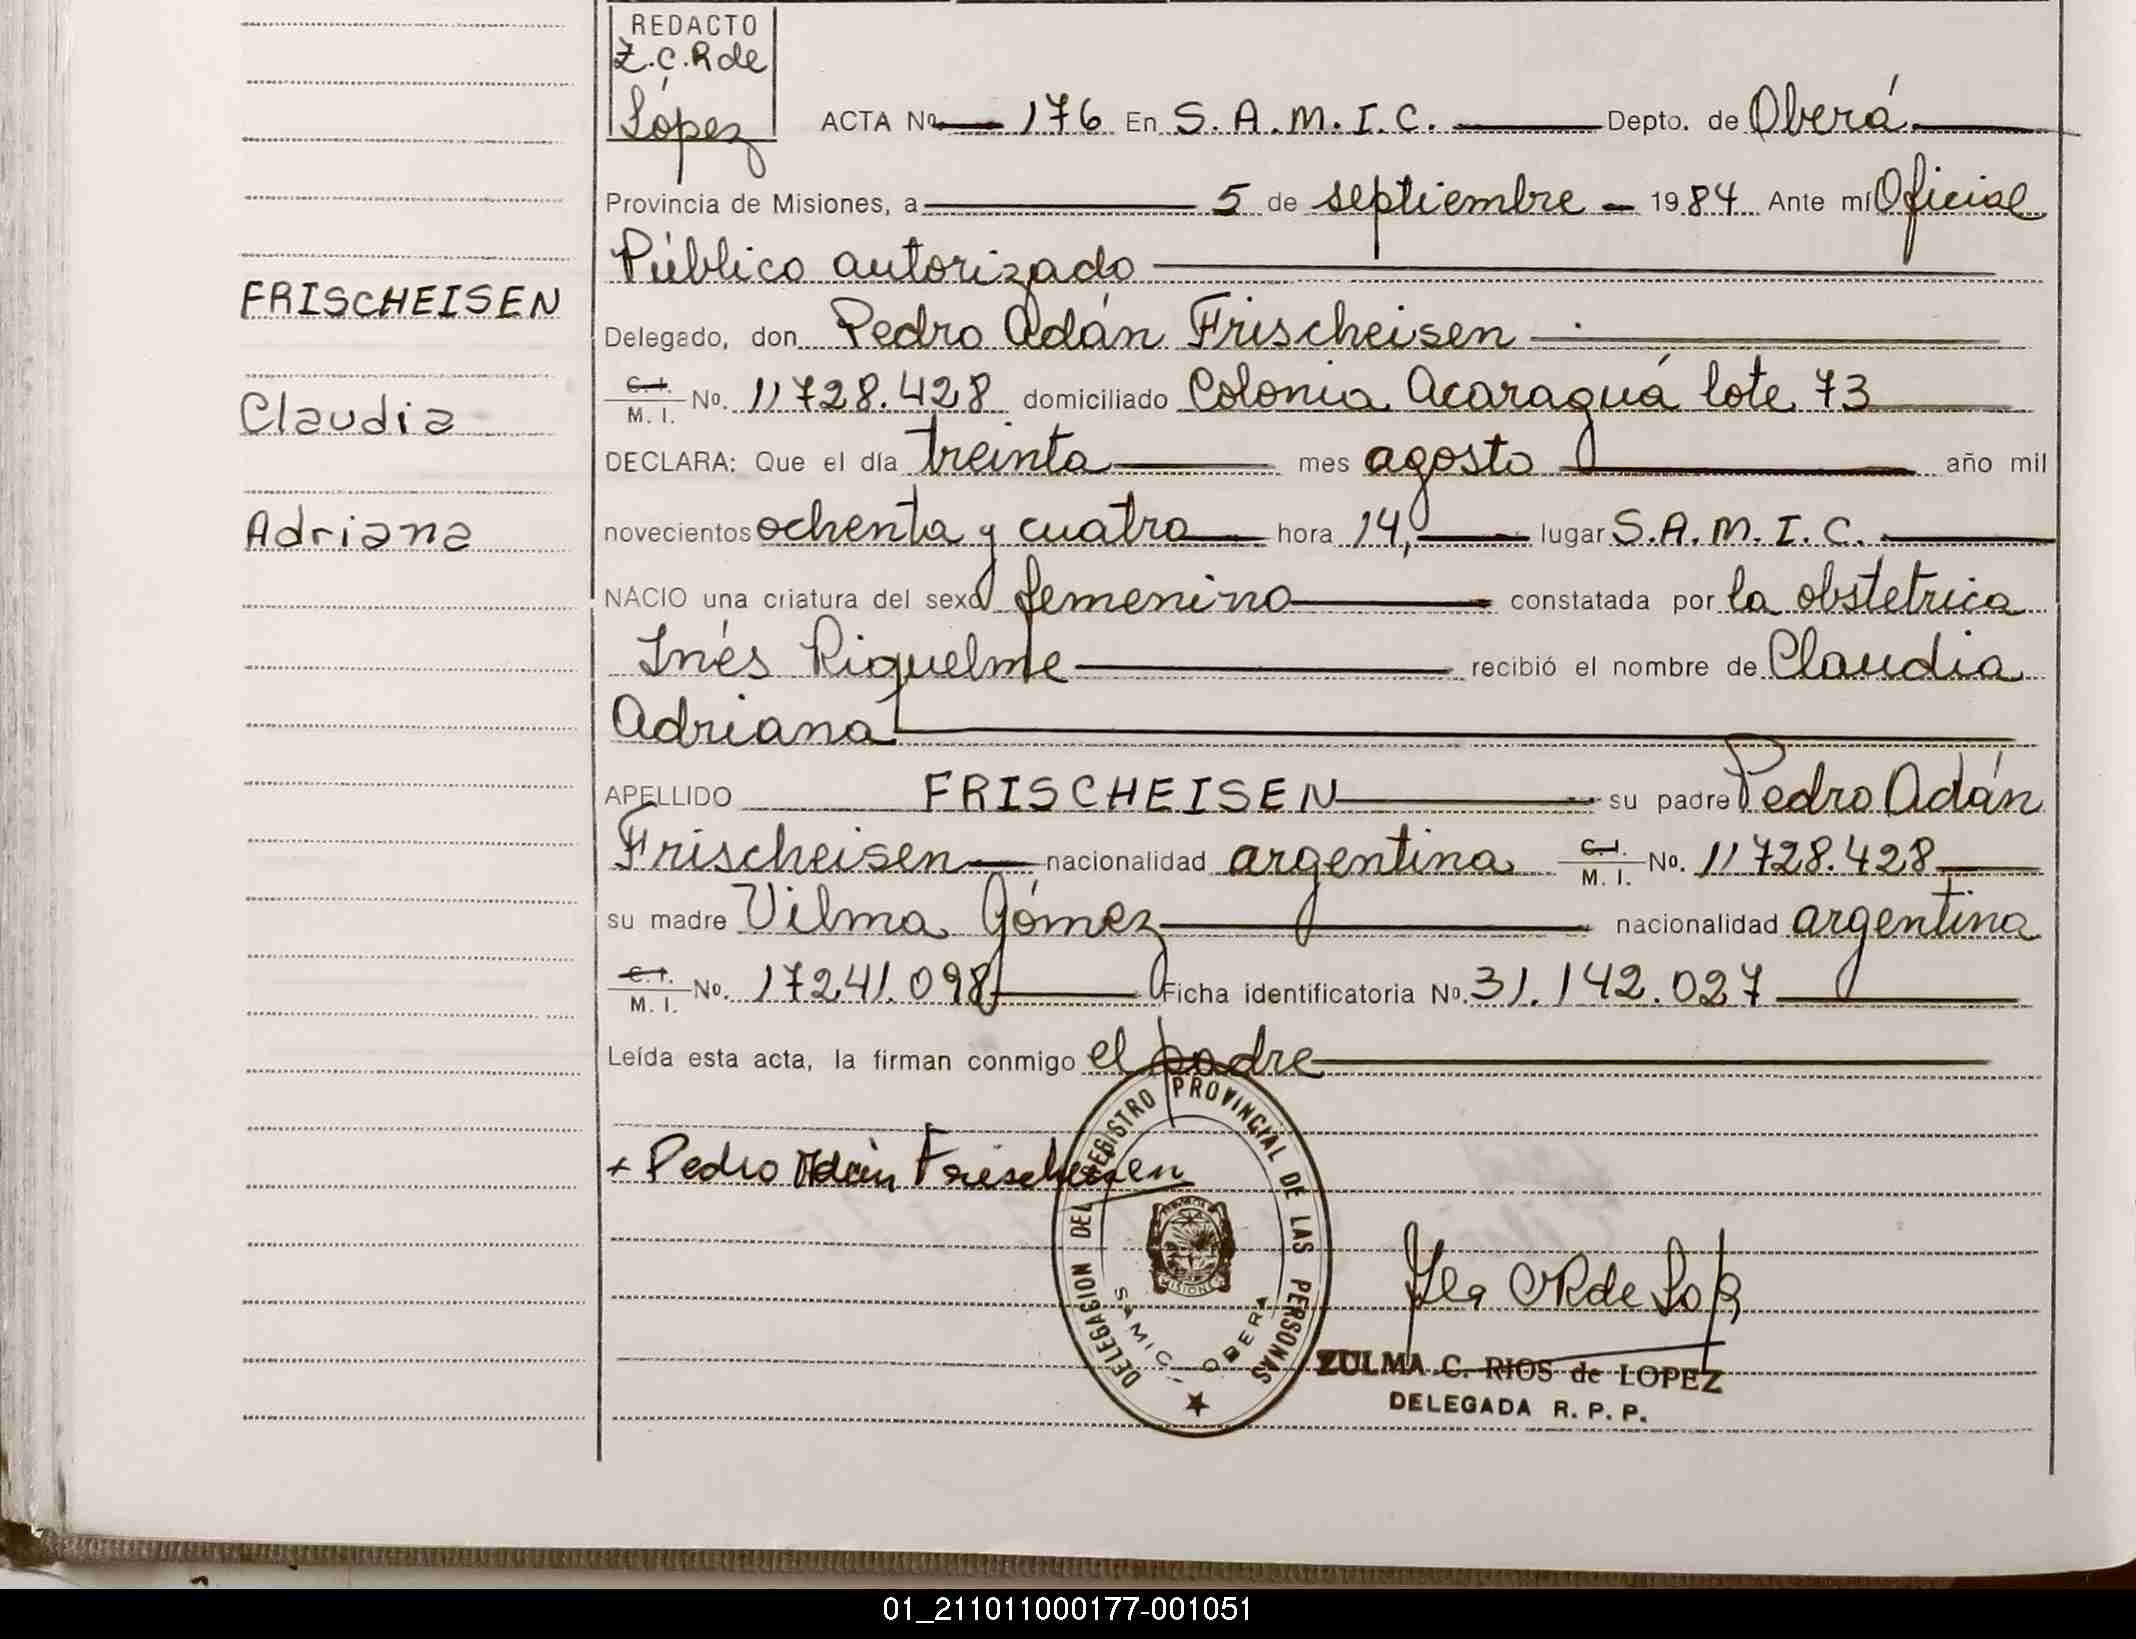 REDACTO
Z.C.R de
López
ACTA No. 176 En S.A.M.I.C. Depto. de Oberá
Provincia de Misiones, a 5 de septiembre 1984 Ante mí Oficial
Público autorizado
FRISCHEISEN
Delegado, don Pedro Adán Frischeisen
C.I. M.I. No. 11728.428 domiciliado Colonia Acaraguá lote 73
Claudia
DECLARA: Que el día treinta mes agosto año mil
Adriana
novecientos ochenta y cuatro hora 14, lugar S.A.M.I.C.
NACIO una criatura del sexo femenino constatada por la obstetrica
Inés Riquelme recibió el nombre de Claudia
Adriana
APELLIDO FRISCHEISEN su padre Pedro Adán
Frischeisen nacionalidad argentina C.I. M.I. No. 11728.428
su madre Vilma Gómez nacionalidad argentina
C.I. M.I. No. 17241.098 Ficha identificatoria No. 31.142.027
Leída esta acta, la firman conmigo el padre
+ Pedro Adán Frischeisen
DELEGACION DEL REGISTRO PROVINCIAL DE LAS PERSONAS
MISIONES
SAMIC - OBERA
ZULMA C. RIOS de LOPEZ
DELEGADA R. P. P.
01_211011000177-001051